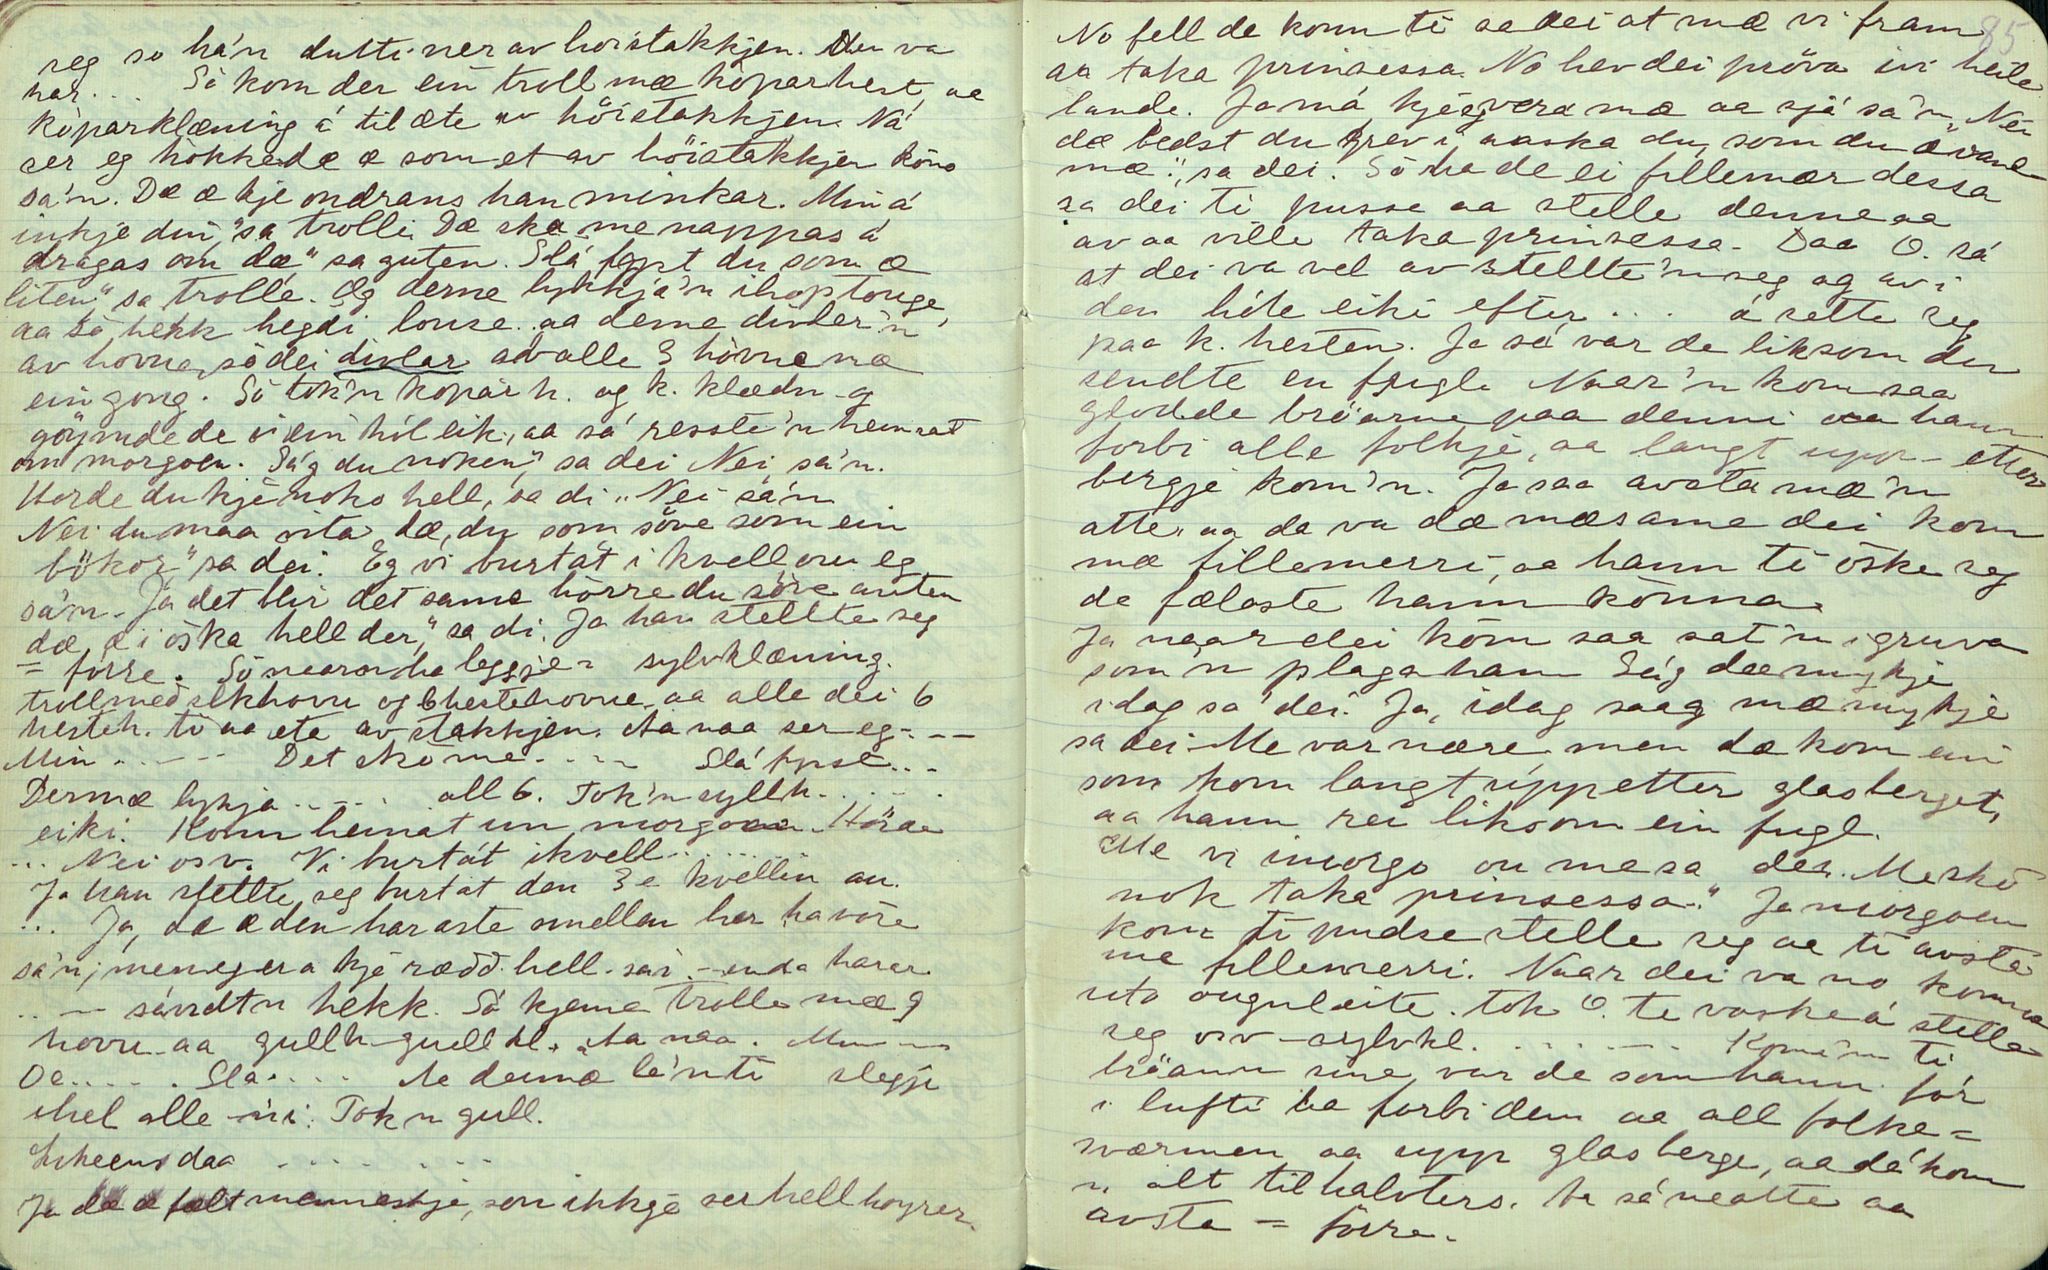 seg so ha'n dutti ner av hoistakkjen. Den va
har... Så kom der ein troll mæ koparhest, aa
koparklæning å til æte av höistakkjen. Nå
ser eg hökke dæ æ som et av höistakkjen könö
sa'n. Dæ æ kje ondrans han minkar. Min å
inkje din, "sa trolli. Dæ ska me nappas å
dragas om dæ," sa guten. Slå fypst du som æ
liten" sa trollé. Og derne lykkja'n ihop tonge,
aa så hekk hegdi louse. aa derne divler'n
av hovne, sö dei divlar av alle 3 hövne mæ
ein gong. Så tok'n kopar h. og k. klædn. og
göymde de i ein hól eik, aa så resste'n heimat
om morgoen. Såg du noken," sa dei Nei sa'n.
Horde du kje noko hell, sa di "Nei sa'n
Nei du maa vita dæ, du som söve som ein
bökor" sa dei. Eg vi burtåt i kvell ou eg
sa'n. Ja det blir det same hörre du söve anten
dæ æ i öska hell der," sa di. Ja han stellte seg
= förre. Sö naar ha leggje = sylvklæning.
troll med sekhovu og 6 hestehovue aa alle dei 6
hesteh. ti aa ete av stakkjen. Aa naa ser eg - - -
Min - - - - - Det skö me - - - - Slå fypst...
Dermæ lykja - - - - - all 6. Tok'n syllh. . . . .
eiki. Konn heimat um morgoen. Höre
... Nei osv. Vi burtåt ikvell . . . . . .
Ja han stellte seg burtåt den 3e kvellin au.
... Ja, dæ æ den haraste smellen her ha vöre
sa'n; men eg era kje rædd hell. sa'i. - enda harar
.. — såvidt'n hekk. Så kjeme trolle mæ 9
hovu aa gullh gull kl. Aa naa. M — —
Oe. . . . . Sla. . . . Ae dermæ le'n ti slegje
ihel alle ni. Tok'n gull.
Likeens daa . . . . . . . .
Ja dæ æ fælt menneskje, som ikkje ser hell hoyrer.
85
No fell de kom ti sa dei at mæ vi fram
aa taka prinsessa. No hev dei pröva ivi heile
lande. Ja må kje eg vera mæ aa sjå sa'n. Nei
dæ bedst du grev i aaska du, som du æ vane
mæ", sa dei. Så ha de ei fillemær dessa
sa dei ti pusse aa stelle denne aa
av aa ville taka prinsessa. Daa O. så
at dei va vel av stellte'n seg og av i
den hóle eiki efter . . . å sette seg
paa k. hesten. Ja så var de liksom du
sendte en fugl. Naar'n kom saa
glodde bröarne paa denni aa hann
forbi alle folkje, aa langt upp etter
bergje kom'n. Ja saa avsta mæ'n
atte, aa da va dæ mæ same dei kom
mæ fillemerri, aa hann ti öske seg
de fælaste hann könna.
Ja naar dei kom saa sat'n i gruva
som'n plaga han Såg dæ mykje
idag sa dei. Ja, idag saag mæ mykje
sa dei. Me var nære, men dæ kom ein
som kom langt upp etter glasberget,
aa hann rei liksom ein fugl.
Me vi imorgo ou me sa dei. Me skö
nok taka prinsessa." Ja morgoen
kom ti pudse stelle seg aa ti avsta
mæ fillemerri. Naar dei va no komne
uto augnleite. tok O. te vaske å stella
seg osv - sylvkl. . . . . . . Kom'n ti
bröann sine, var de som hann för
i lufti aa forbi dem aa all folke=
sværmen aa upp glasberge, aa då kom
n alt til halvters. Aa så ne atte aa
avsta = förre.